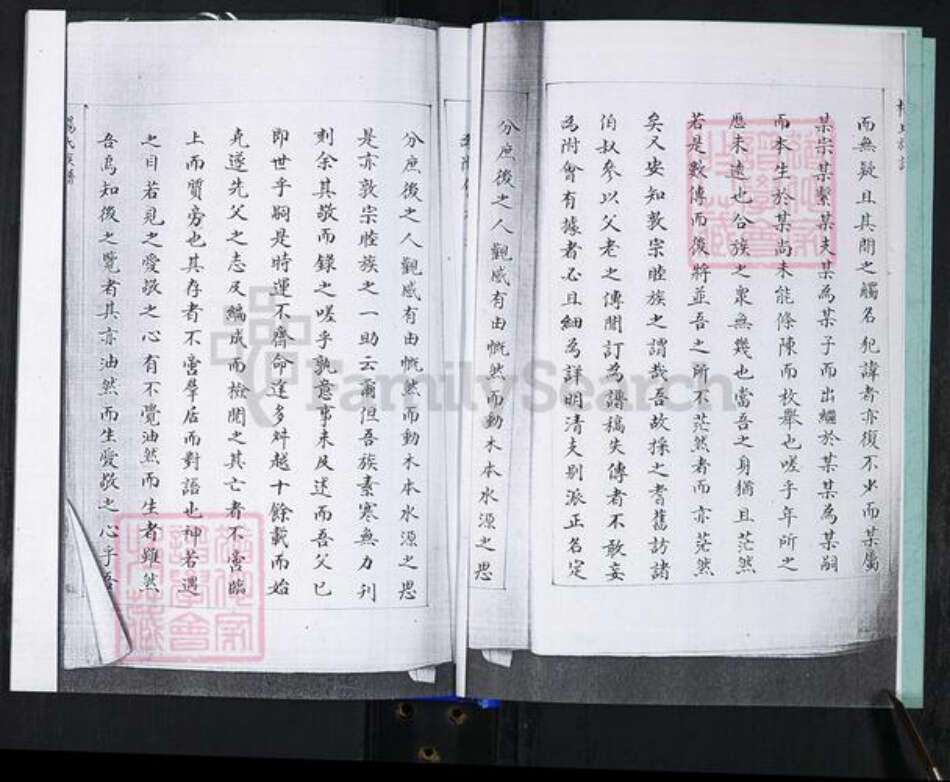 而無疑且其間之觸名犯諱者亦復不少而某屬
某宗某繫某夫某為某子而出繼於某某為某嗣
而本生於某尚未能條陳而枚舉也嗟乎年所之
歷未遠也合族之衆無幾也當吾之身猶且茫然
若是數傳而後將並吾之所不茫然者而亦茫然
矣又安知敦宗睦族之謂哉吾故採之耆舊訪諸
伯叔參以父老之傳聞訂為譜稿失傳者不敢妄
為附會有據者必且細為詳明清夫别派正名定
分庶後之人觀感有由慨然而動木本水源之思
分庶後之人觀感有由慨然而動木本水源之思
是亦敦宗睦族之一助云爾但吾族素寒無力刊
刻余其敬而錄之嗟乎孰意事未及述而吾父已
即世乎嗣是時運不齊命途多舛越十餘載而始
克遂先父之志及編成而檢閱之其亡者不啻臨
上而質旁也其存者不啻羣居而對語也神若遇
之目若見之愛敬之心有不覺油然而生者雖然
吾烏知後之覽者其亦油然而生愛敬之心乎
楊氏族譜
FamilySearch